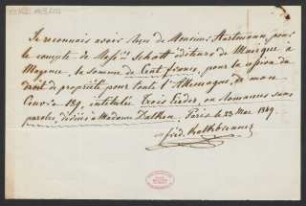 Je reconnais avoir reçu de Monsieur Hartmann, pour
le compte de Mess.rs Schott éditeurs de Musique à
Mayence, la somme de Cent francs, pour la cession du
droit de propriété pour toute l'Allemagne, de mon
Oeuvre 189, intitulée Trois Lieder, ou Romances sans
paroles, dédiées à Madame Paris le 23 Mai 1849.
Fréd. Kalkbrenner